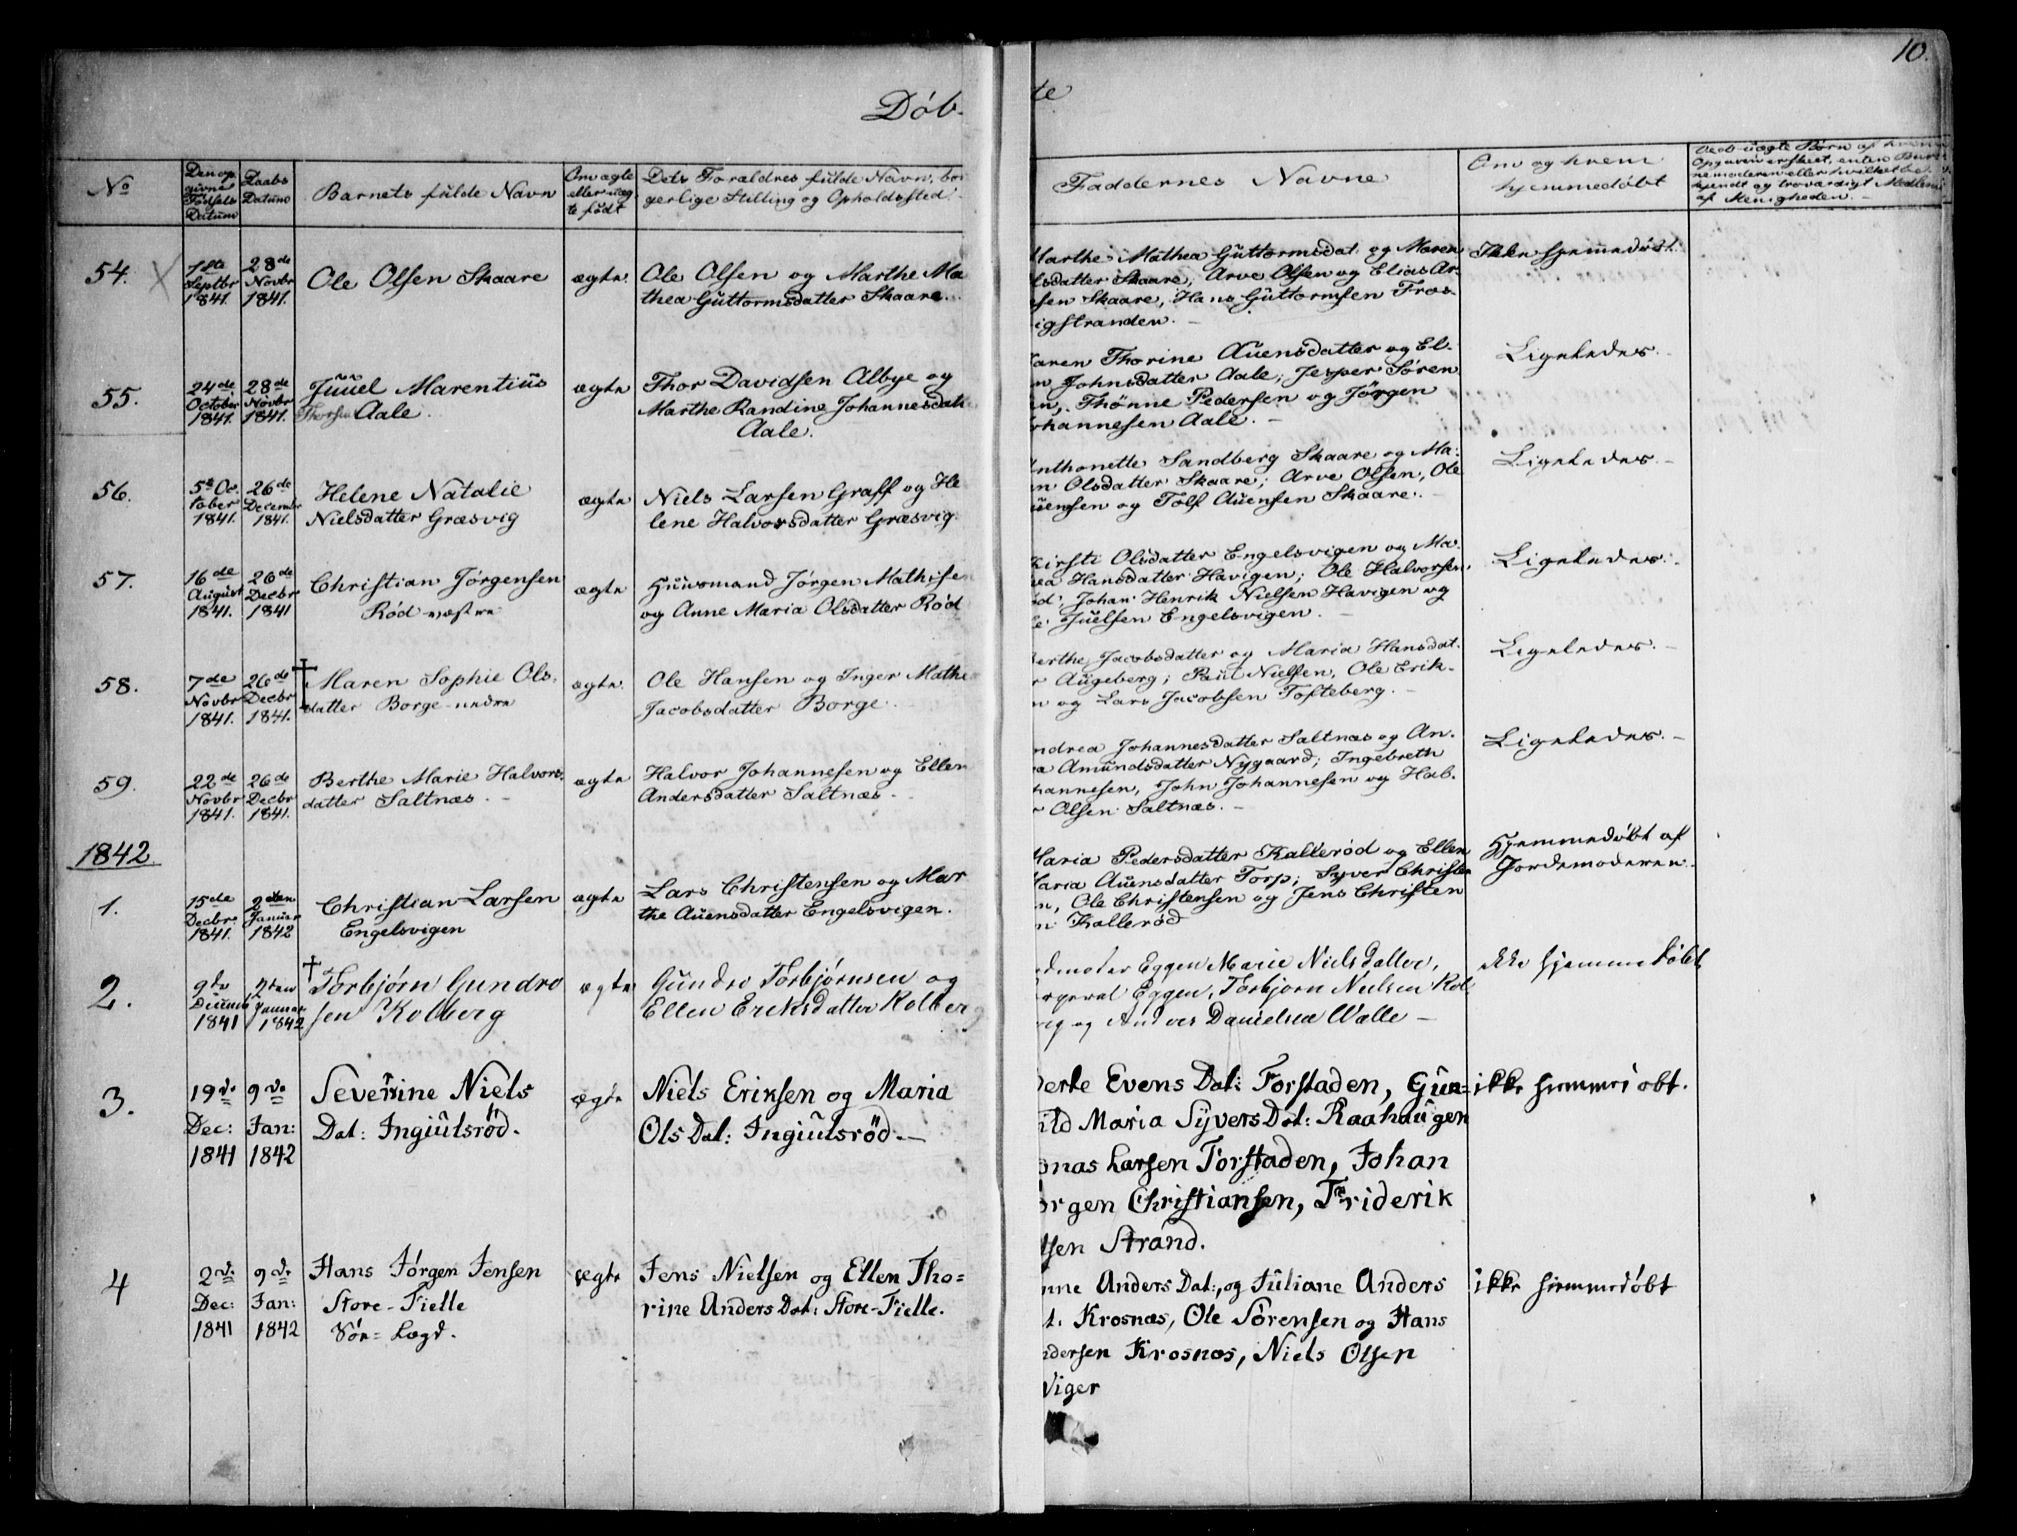 10.
Døb-
te
No
Den op
givne
Fødsels
Datum
Daabs
Datum
Barnets fulde Navn
Om ægte
eller uæg
te født
Dets Forældres fulde Navn, bor
gerlige Stilling og Opholdssted.
Faddernes Navne
Om og hvem
hjemmedøbt
Ved uægte Børn af hvem
Opgaven er skeet, enten Barne
moderen eller hvilket be-
kjendt og troværdigt Medlem
af Menigheden.
54.
1ste
Septbr
1841.
28de
Novbr
1841.
Ole Olsen Skaare
ægte
Ole Olsen og Marthe Ma
thea Guttormsdatter Skaare.
Marthe Mathea Guttormsdat. og Maren
lsdatter Skaare, Arve Olsen og Elias Ar-
esen Skaare, Hans Guttormsen Fros-
igstranden.
Ikke hjemmedøbt.
55.
24de
October
1841.
28de
Novbr
1841.
Juuel Marentius
Thorsen Aale.
ægte
Thor Davidsen Albye og
Marthe Randine Johannesdat
Aale.
aren Thorine Auensdatter og El-
n Johnsdatter Aale; Jesper Sören
en, Thönne Pedersen og Jörgen
ohannesen Aale.
Ligeledes.
56.
5te Oc
tober
1841.
26de
Decembr
1841.
Helene Natalie
Nielsdatter Græsvig
ægte
Niels Larsen Graff og He
lene Halvorsdatter Græsvig.
Anthonette Sandberg Skaare og Ma-
en Olsdatter Skaare; Arve Olsen, Ole
uensen og Tolf Auensen Skaare.
Ligeledes.
57.
16de
August
1841.
26de
Decbr
1841
Christian Jörgensen
Röd vestre
ægte
Huusmand Jörgen Mathisen
og Anne Maria Olsdatter Röd
Kirsti Olsdatter Engelsvigen og Ma-
ea Hansdatter Havigen; Ole Halvorsen
öd, Johan Henrik Nielsen Havigen og
le Juelsen Engelsvigen.
Ligeledes.
58.
7de
Novbr
1841.
26de
Decbr
1841.
† Maren Sophie Ols-
datter Borge nedre
ægte.
Ole Hansen og Inger Mathea
Jacobsdatter Borge.
Berthe Jacobsdatter og Maria Hansdat-
r Augeberg; Paul Nielsen, Ole Erik-
n og Lars Jacobsen Tofteberg.
Ligeledes.
59.
22de
Novbr
1841.
26de
Decbr
1841.
Berthe Marie Halvors
datter Saltnæs.
ægte
Halvor Johannesen og Ellen
Andersdatter Saltnæs.
ndrea Johannesdatter Saltnæs og An-
a Amundsdatter Nygaard; Ingebreth
hannesen, John Johannesen og Hal-
r Olsen Saltnæs.
Ligeledes.
1842
1.
15de
Decbr
1841.
2den
Januar
1842
Christian Larsen
Engelsvigen
ægte
Lars Christensen og Mar
the Auensdatter Engelsvigen.
Maria Pedersdatter Kallerød og Ellen
Maria Auensdatter Torp; Syver Christen
n, Ole Christensen og Jens Christen
n Kallerød
Hjemmedøbt af
Jordemoderen.
2.
9de
Decemb
1841
2den
Januar
1842
† Torbjørn Gundro
sen Kolberg
ægte
Gundro Torbjørnsen og
Ellen Eriksdatter Kolberg
rdmoder Eggen Marie Nielsdatter,
orporal Eggen, Torbjorn Nielsen Kol
erg og Anders Danielsen Walle —
ikke hjemmedøbt
3.
19de
Dec:
1841
9de
Jan:
1842
Severine Niels
Dat: Ingiulsröd.
ægte
Niels Eriksen og Maria
Ols Dat: Ingiulsröd. —
Berte Evens Dat: Torstaden, Gun=
ild Maria Syvers Dat: Raahaugen
onas Larsen Torstaden, Johan
örgen Christiansen, Friderik
lsen Strand.
ikke hiemmedøbt.
4
2de
Dec:
1841
9de
Jan:
1842
Hans Jörgen Jensen
Store-Fielle
Sör= Lægd.
ægte
Jens Nielsen og Ellen Tho=
rine Anders Dat: Store-Fielle.
nne Anders Dat:, og Juliane Anders
t. Krosnæs, Ole Sörensen og Hans
ndersen Krosnæs, Niels Olsen
Viger
ikke hiemmedøbt